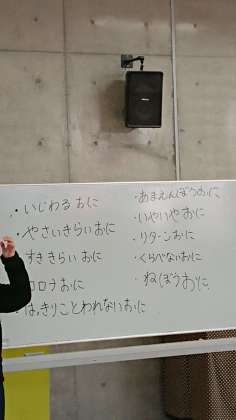 ・いじわるおに
・やさいきらいおに
すききらいおに
コロナおに
はっきりことわれないおに
・あまえんぼうおに
・いやいやおに
・リターンおに
・くらべないおに
・ねぼうおに